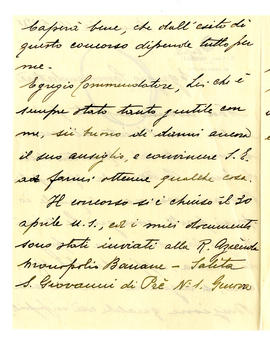 Capirà bene, che dall'esito di
questo concorso dipende tutto per
me.
Egregio Commendatore, Lei che è
sempre stato tanto gentile con
me, sii buono di darmi ancora
il suo ausiglio, e convincere S. E.
ad farmi ottenere qualche cosa.
Il concorso si è chiuso il 30
aprile u.s., ed i miei documenti
sono stati inviati alla R. Azienda
Monopolio Banane – Salita
S. Giovanni di Prè N. 1. Genova